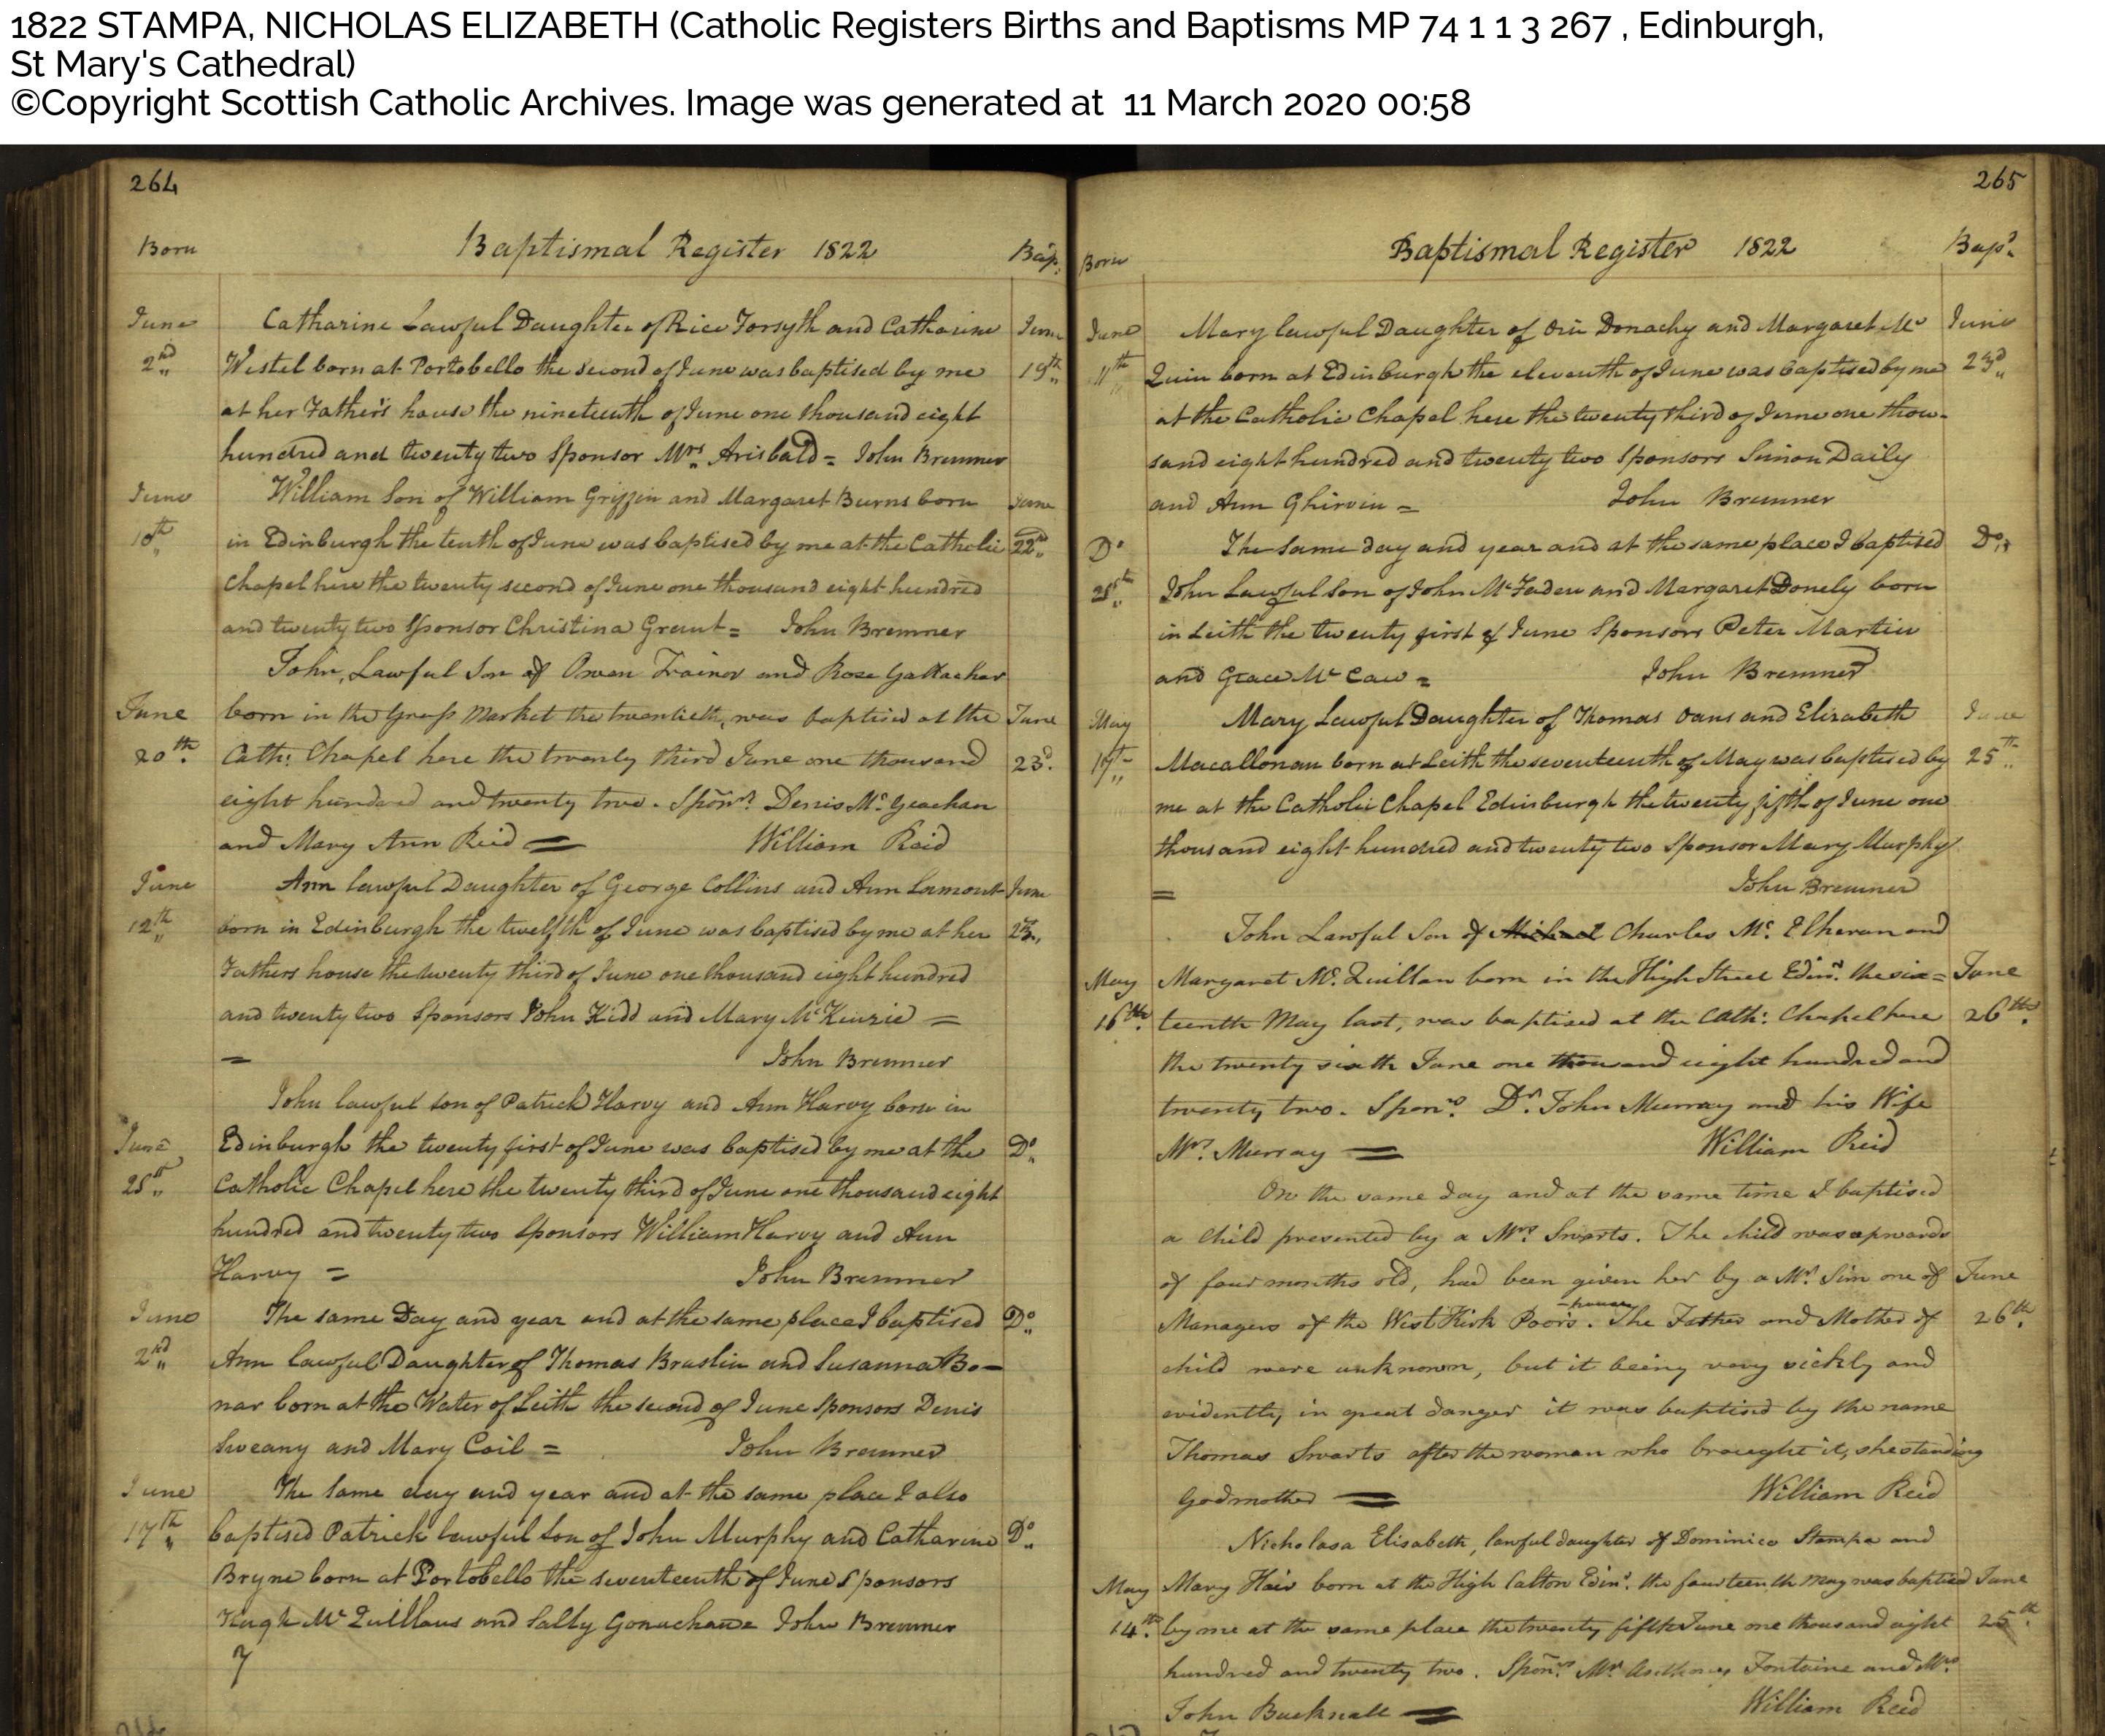 1822 STAMPA, NICHOLAS ELIZABETH (Catholic Registers Births and Baptisms MP 74 1 1 3 267 , Edinburgh,
St Mary's Cathedral)
©Copyright Scottish Catholic Archives. Image was generated at 11 March 2020 00:58
264
Born Baptismal Register 1822 Bap.
June Catharine Lawful Daughter of Rice Forsyth and Catharine June
2nd Westel born at Portobello the second of June was baptised by me 19th
at her Father's house the nineteenth of June one thousand eight
hundred and twenty two Sponsor Mrs Arisbald = John Bremner
June William Son of William Griffin and Margaret Burns born June
10th in Edinburgh the tenth of June was baptised by me at the Catholic 22nd
Chapel here the twenty second of June one thousand eight hundred
and twenty two Sponsor Christina Grant = John Bremner
John, Lawful Son of Owen Trainor and Rose Gallacher
June born in the Grass Market the twentieth, was baptised at the June
20th. Cath: Chapel here the twenty third June one thousand 23d.
eight hundred and twenty two. Sponrs Denis Mc Geachan
and Mary Ann Reid = William Reid
June Ann lawful Daughter of George Collins and Ann Lamont June
12th born in Edinburgh the twelfth of June was baptised by me at her 23
Fathers house the twenty third of June one thousand eight hundred
and twenty two Sponsors John Kidd and Mary McKenzie =
= John Bremner
John lawful son of Patrick Harvy and Ann Harvy born in
June Edinburgh the twenty first of June was baptised by me at the Do
21st Catholic Chapel here the twenty third of June one thousand eight
hundred and twenty two Sponsors William Harvy and Ann
Harvy = John Bremner
June The same Day and year and at the same place I baptised Do
2nd Ann lawful Daughter of Thomas Braslin and Susanna Bo-
nar born at the Water of Leith the second of June Sponsors Denis
Sweany and Mary Coil = John Bremner
June The same day and year and at the same place I also
17th baptised Patrick lawful Son of John Murphy and Catharine Do
Bryne born at Portobello the seventeenth of June Sponsors
Hugh Mc Quillans and Sally John Bremner
7
265
Born Baptismal Register 1822 Bapd
June Mary lawful Daughter of Donachy and Margaret Mc June
11th Quin born at Edinburgh the eleventh of June was baptised by me 23d
at the Catholic Chapel here the twenty third of June one thou-
sand eight hundred and twenty two Sponsors Simon Daily
and Ann Ghirvin = John Bremner
Do The same day and year and at the same place I baptised Do
21st John Lawful Son of John McFaden and Margaret Donely born
in Leith the twenty first of June Sponsors Peter Martin
and Grace Mc Caw = John Bremner
May Mary Lawful Daughter of Thomas Oans and Elizabeth June
17th Macallonan born at Leith the seventeenth of May was baptised by 25th
me at the Catholic Chapel Edinburgh the twenty fifth of June one
thousand eight hundred and twenty two Sponsor Mary Murphy
= John Bremner
John Lawful Son of Michael Charles Mc. Elheran and
May Margaret Mc. Quillan born in the High Street Edinr. the six= June
16th. teenth May last, was baptised at the Cath: Chapel here 26th.
the twenty sixth June one thousand eight hundred and
twenty two. Sponrs Dr. John Murray and his Wife
Mrs. Murray = William Reid
On the same day and at the same time I baptised
a child presented by a Mrs. Swarts. The child was upwards
of four months old, had been given her by a Mr. Sim one of June
Managers of the West Kirk Poors -house. The Father and Mother of 26th.
child were unknown, but it being very sickly and
evidently in great danger it was baptised by the name
Thomas Swarts after the woman who brought it, she standing
Godmother = William Reid
Nicholasa Elisabeth, lawful daughter of Dominico Stampa and
May Mary Hair born at the High Calton Edinr. the fourteenth May was baptised June
14th. by me at the same place the twenty fifth June one thousand eight 25th.
hundred and twenty two. Sponrs Mr Anthony Fontaine and Mrs
John Bucknall = William Reid